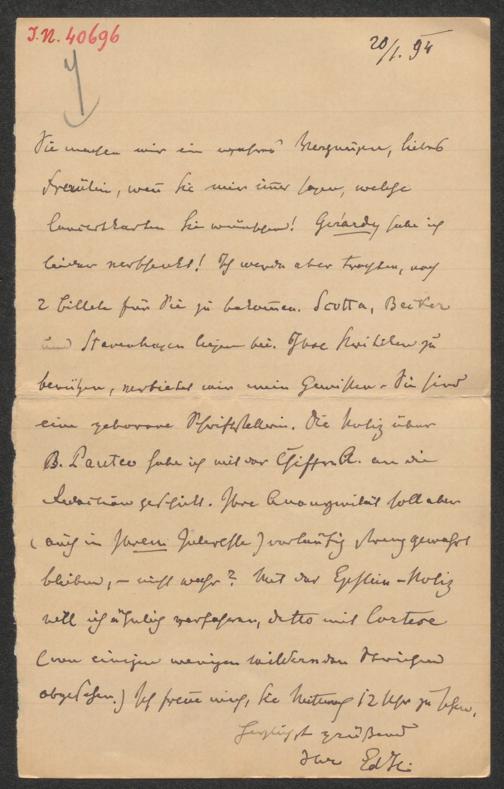 I.N. 40696
20/I. 94
Sie machen mir ein wahres Vergnügen, liebes
Fräulein, wenn Sie mir immer sagen, welche
Concertkarten Sie wünschen! Gérardy habe ich
leider verschenkt! Ich werde aber trachten, noch
2 Billete für Sie zu bekommen. Scotta, Becker
und Stavenhagen liegen bei. Ihre Kritiken zu
verbietet mir mein Gewissen - Sie sind
eine geborene Schriftstellerin. Die Notiz über
B. habe ich mit der Chiffre R. an die
Redaction geschickt. Ihre Anonymität soll aber
(auch in Ihrem Interesse) vorläufig streng gewahrt
bleiben, – nicht wahr? Mit der Epstein-Notiz
will ich ähnlich verfahren, detto mit Cortese
(von einigen wenigen mildernden Strichen
abgesehen.) Ich freue mich, Sie Mittwoch 12 Uhr zu sehen.
Herzlichst grüßend
Ihr EdHi